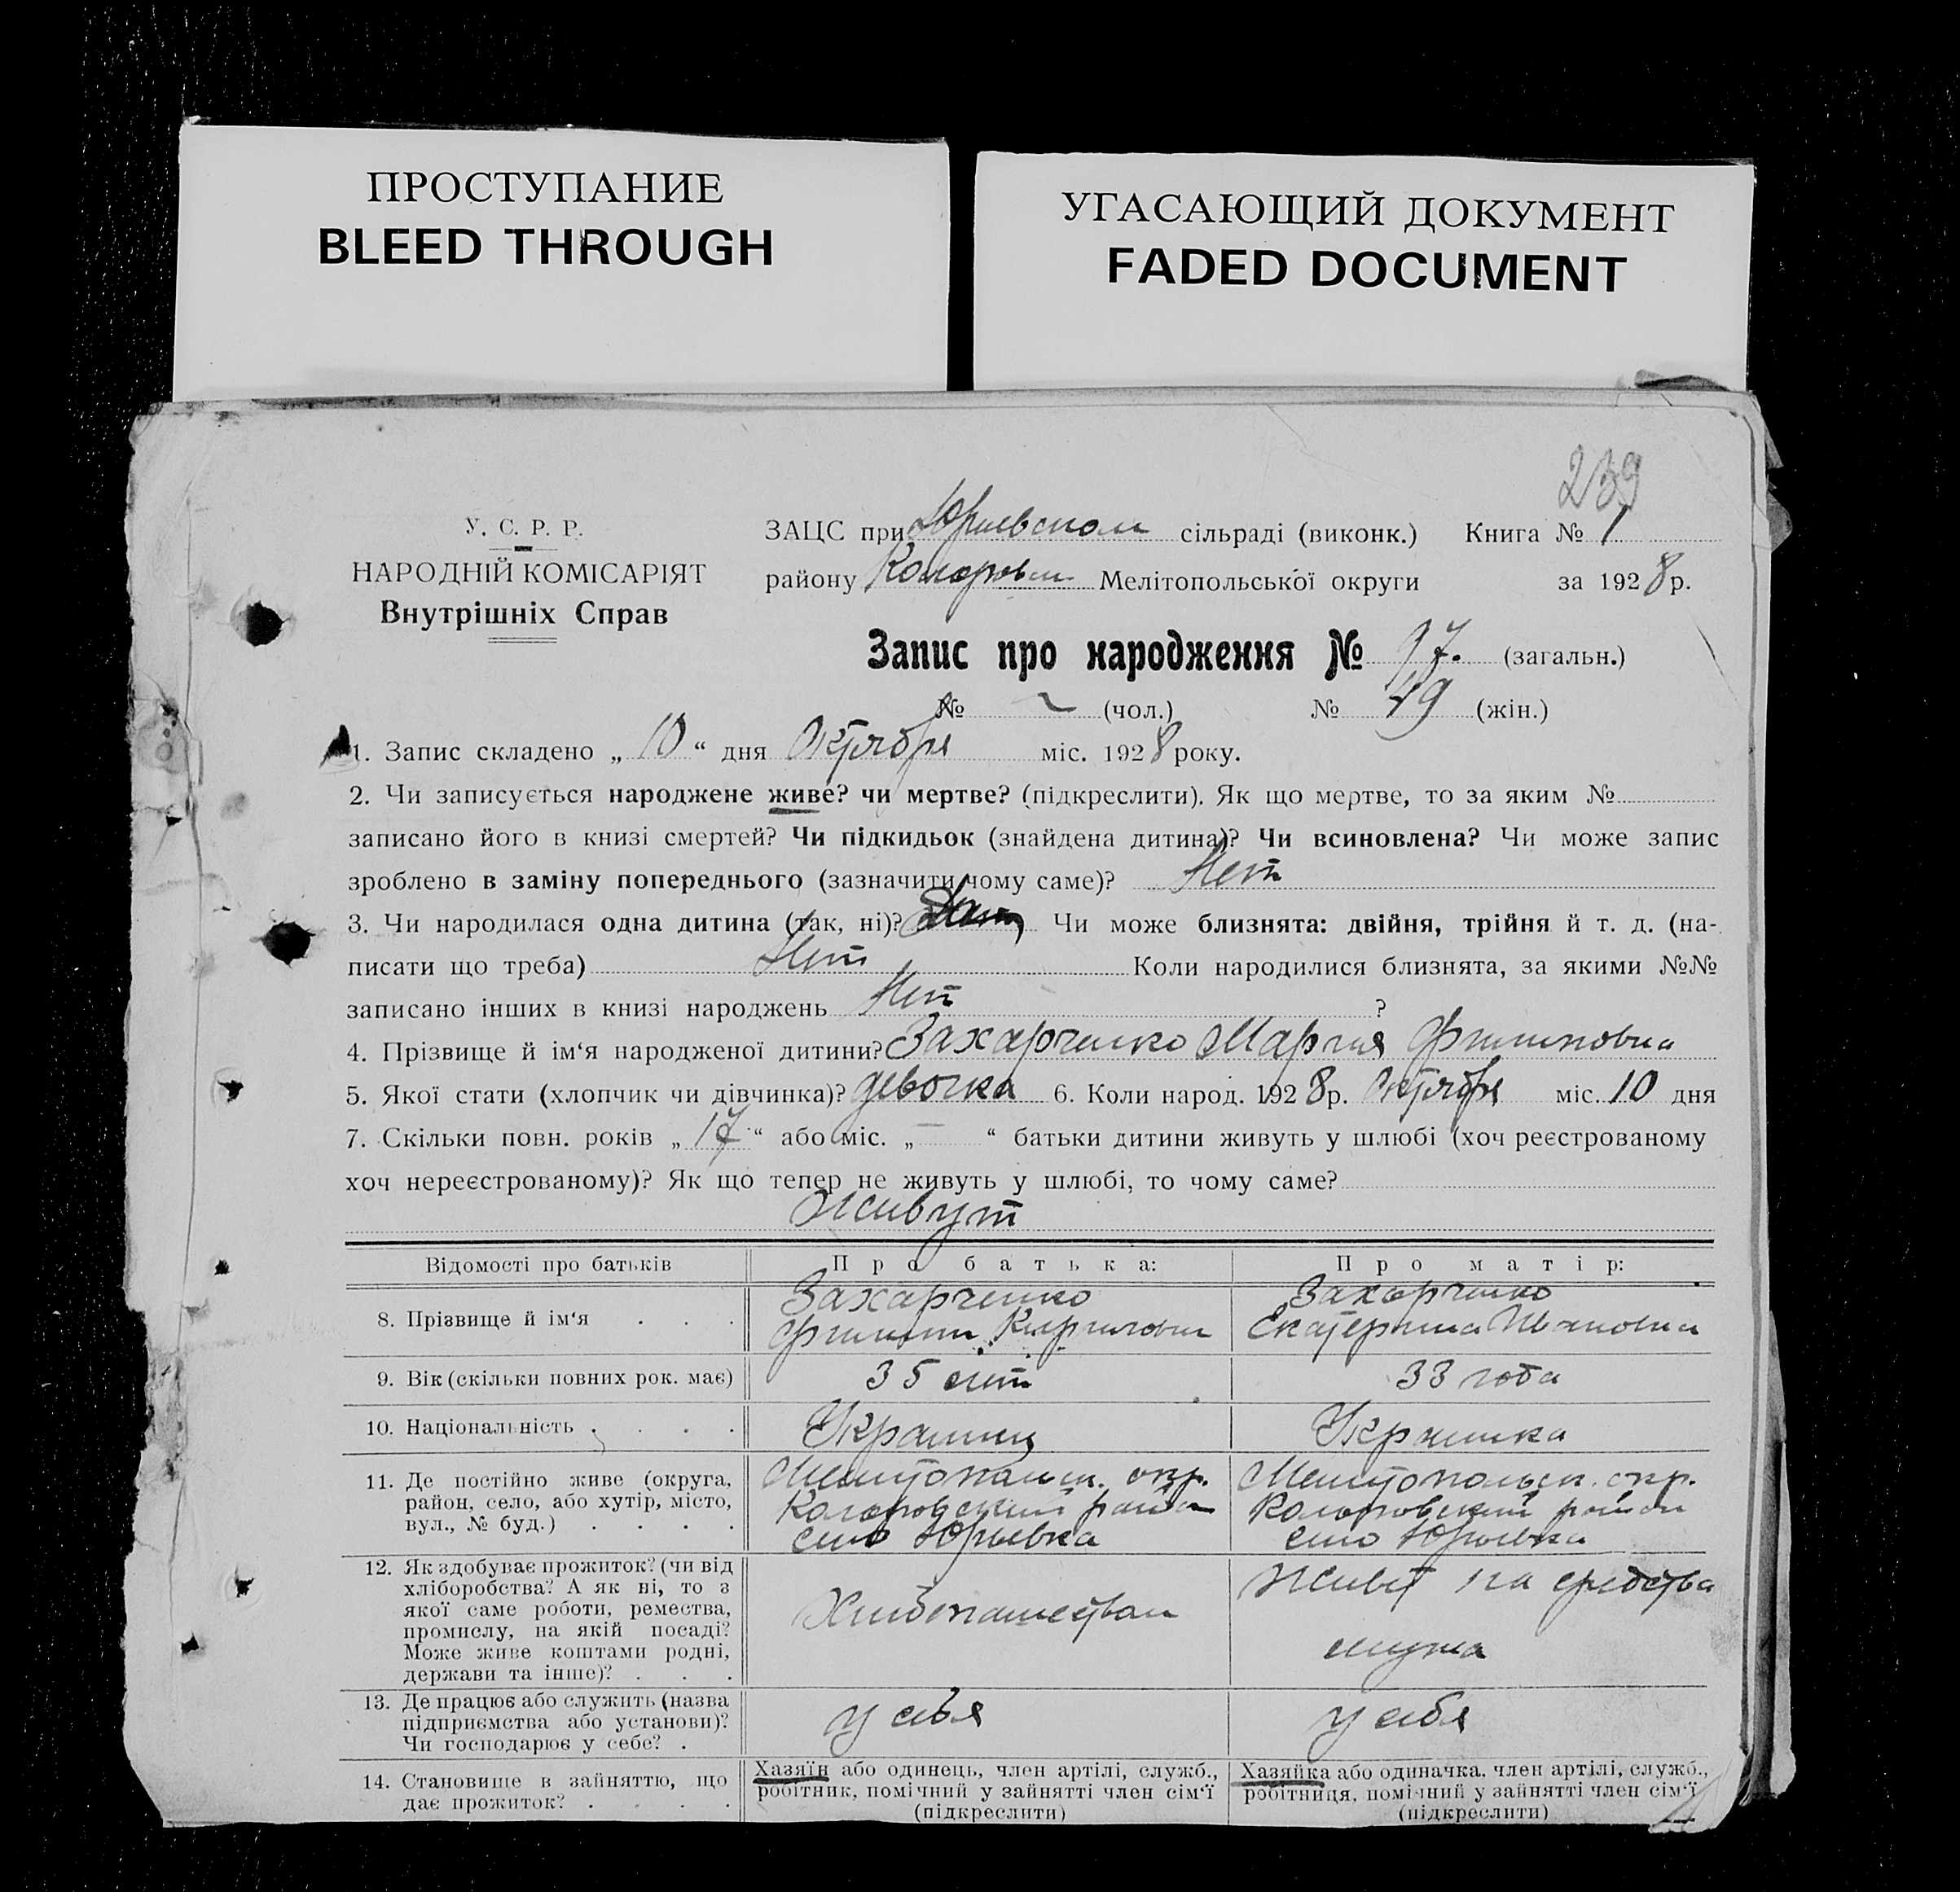 ПРОСТУПАНИЕ
BLEED THROUGH
УГАСАЮЩИЙ ДОКУМЕНТ
FADED DOCUMENT
239
У. С. Р. Р.
НАРОДНІЙ КОМІСАРІЯТ
Внутрішніх Справ
ЗАЦС при Юрьевском сільраді (виконк.) Книга № 1
району Коларовск Мелітопольської округи за 1928 р.
Запис про народження № 97. (загальн.)
№ (чол.) № 49 (жін.)
1. Запис складено „ 10 “ дня Октября міс. 1928 року.
2. Чи записується народжене живе? чи мертве? (підкреслити). Як що мертве, то за яким №
записано його в книзі смертей? Чи підкидьок (знайдена дитина)? Чи всиновлена? Чи може запис
зроблено в заміну попереднього (зазначити чому саме)? Нет
3. Чи народилася одна дитина (так, ні)? Чи може близнята: двійня, трійня й т. д. (на-
писати що треба) Нет Коли народилися близнята, за якими №№
записано інших в книзі народжень Нет ?
4. Прізвище й ім‘я народженої дитини? Захарченко Мария Филиповна
5. Якої стати (хлопчик чи дівчинка)? девочка 6. Коли народ. 1928 р. Октября міс. 10 дня
7. Скільки повн. років „ 17 “ або міс. „ — “ батьки дитини живуть у шлюбі (хоч реєстрованому
хоч нереєстрованому)? Як що тепер не живуть у шлюбі, то чому саме?
Живут
Відомості про батьків Про батька: Про матір:
8. Прізвище й ім‘я . . . Захарченко Филипп Кириллович Захарченко Екатерина Ивановна
9. Вік (скільки повних рок. має) 35 лет 33 года
10. Національність . . . . Украинец Украинка
11. Де постійно живе (округа,
район, село, або хутір, місто,
вул., № буд.) . . . .
Мелитопольск. окр.
Коларовский район
село Юрьевка
Мелитопольск. окр.
Коларовский район
село Юрьевка
12. Як здобуває прожиток? (чи від
хліборобства? А як ні, то з
якої саме роботи, ремества,
промислу, на якій посаді?
Може живе коштами родні,
держави та інше)? . . .
Хлебопашеством
Живет на средства
мужа
13. Де працює або служить (назва
підприємства або установи)?
Чи господарює у себе? .
у себя
у себя
14. Становище в зайняттю, що
дає прожиток? . . . .
Хазяїн або одинець, член артілі, служб.,
робітник, помічний у зайнятті член сім‘ї
(підкреслити)
Хазяйка або одиначка. член артілі, служб.,
робітниця, помічний у зайнятті член сім‘ї
(підкреслити)